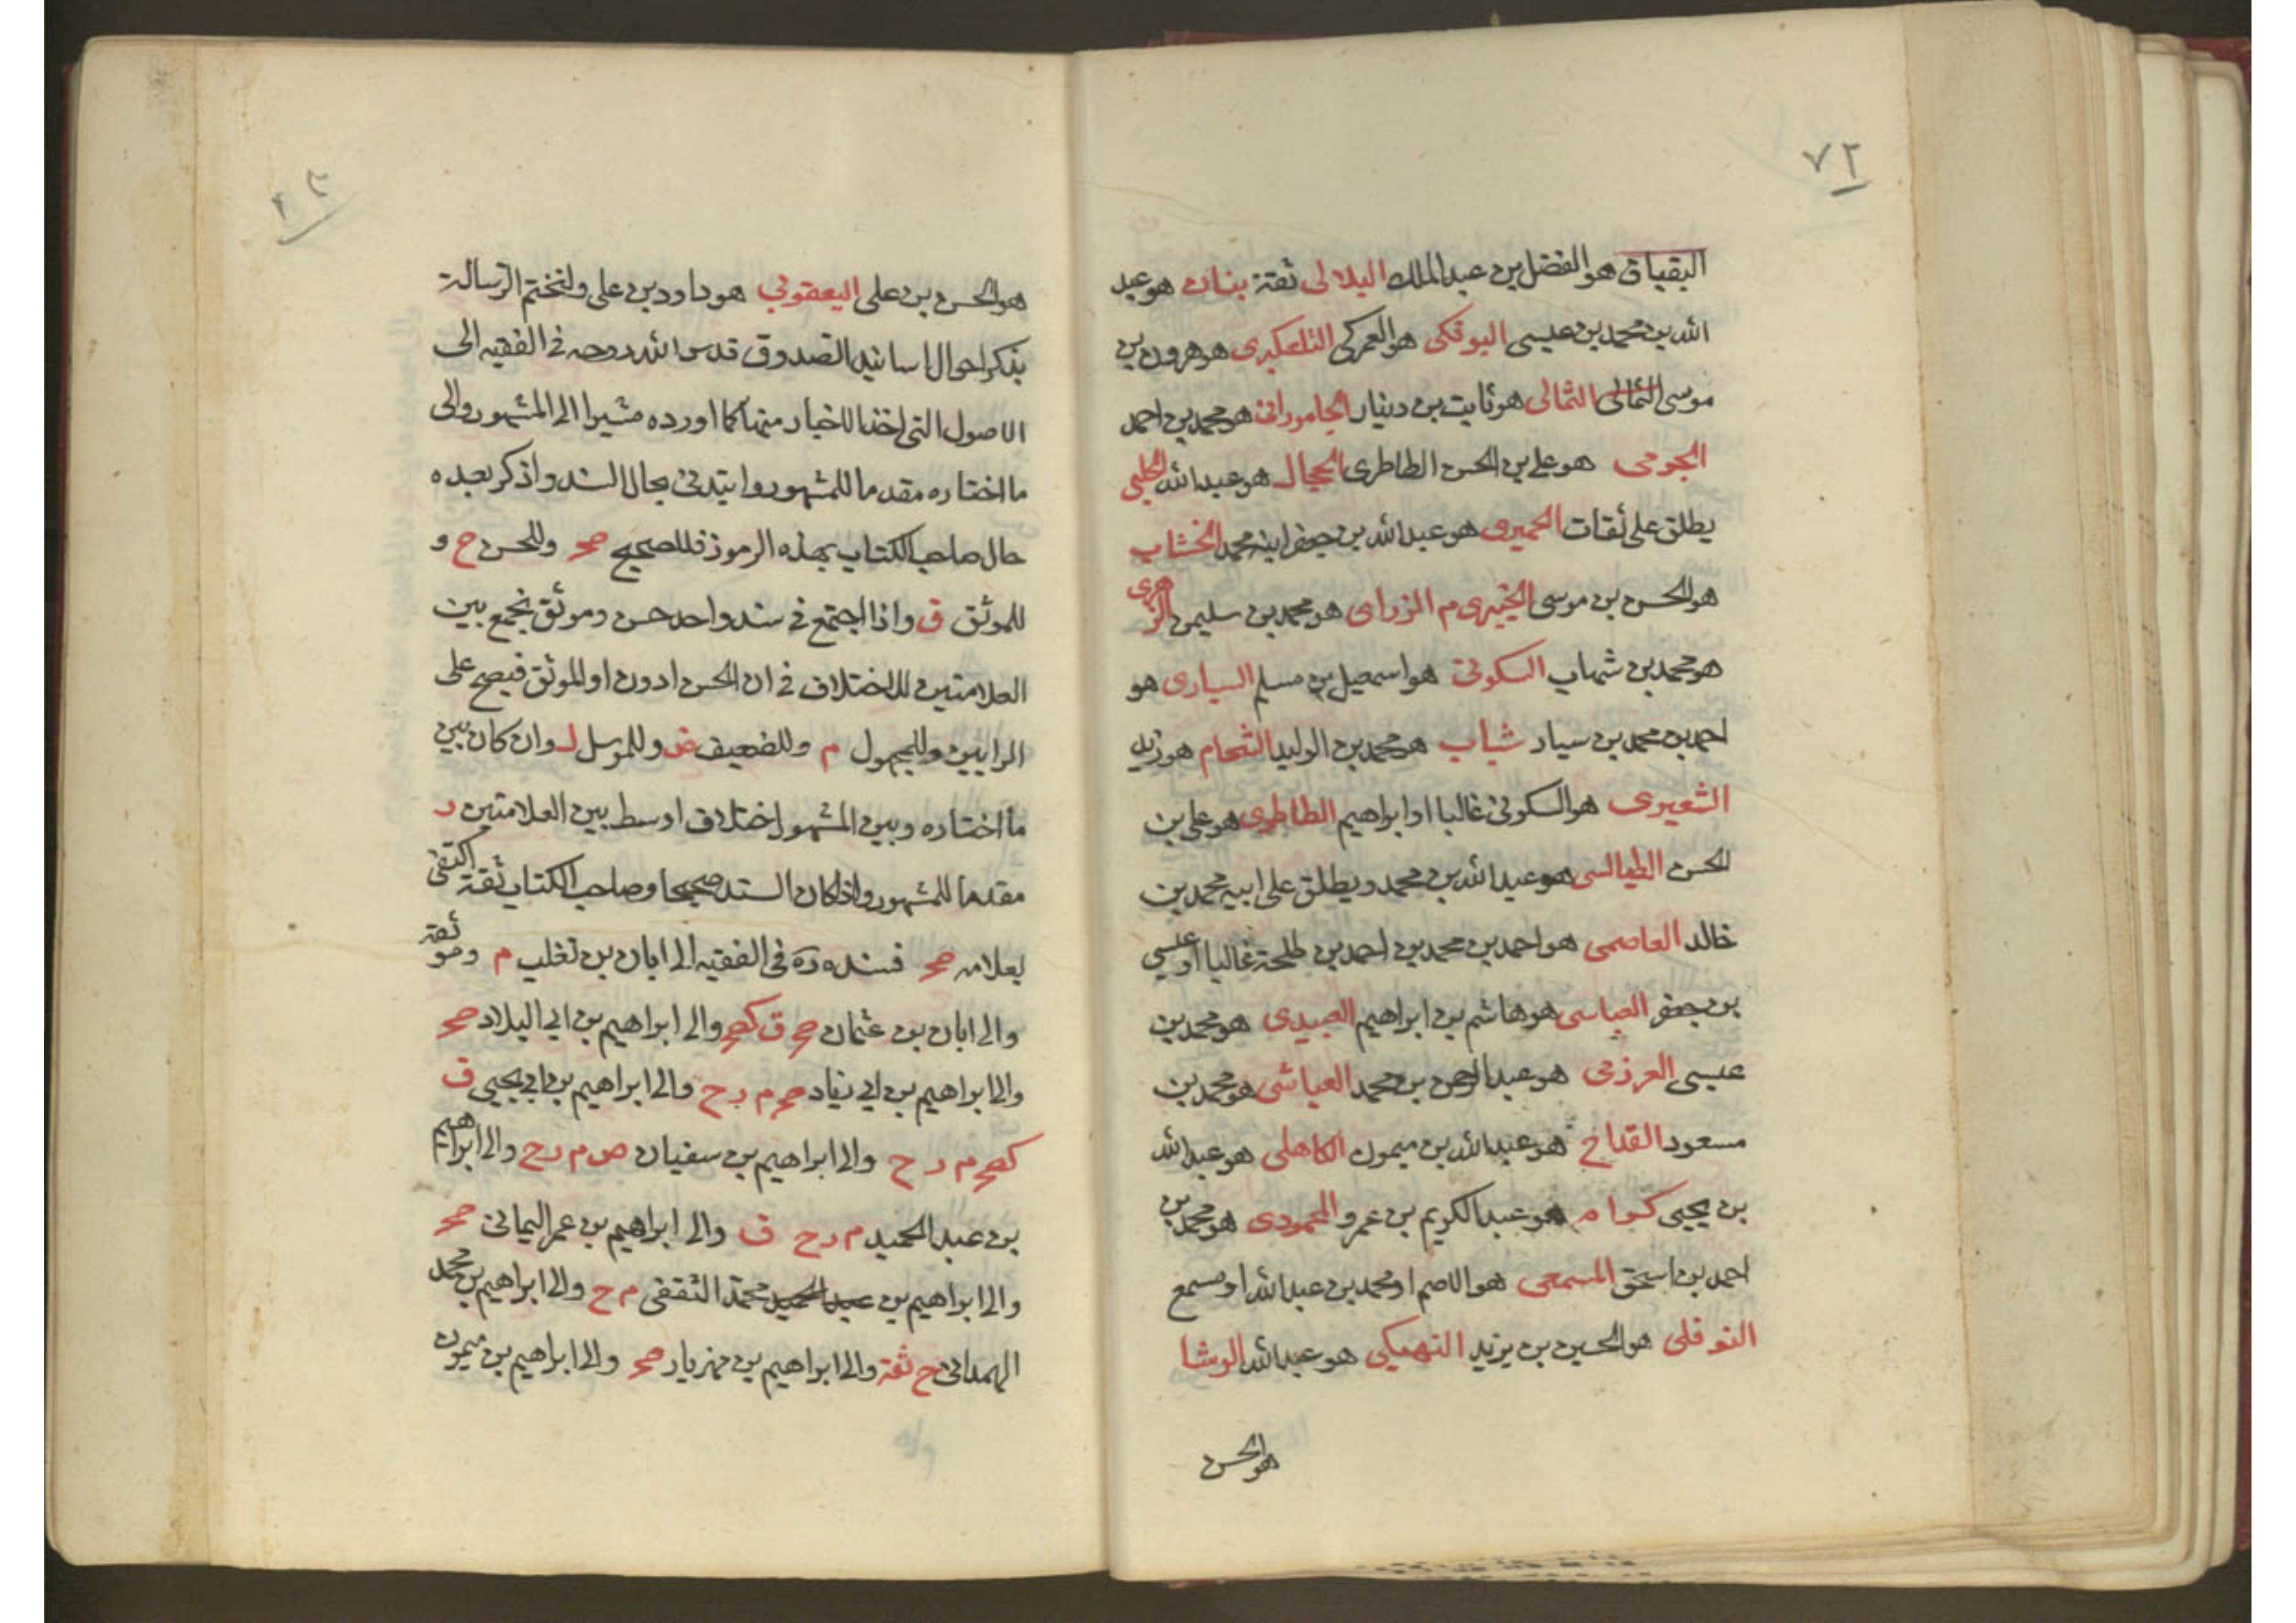 ٧٢
البقباق هو الفضل بن عبد الملك البلالى ثقة بنان هو عبد
الله بن محمد بن عيسى البوفكى هو العمركى التلعكبرى هو هرون بن
موسى الثمالى الثمالى هو ثابت بن دينار الجامورانى هو محمد بن احمد
الجرمى هو على بن الحسن الطاطرى الحجال هو عبد الله الحلبى
يطلق على ثقات الحميرى هو عبد الله بن جعفر ابنه محمد الخشاب
هو الحسن بن موسى الخيبرى م الزرارى هو محمد بن سليمن الزهرى
هو محمد بن شهاب السكونى هو اسمعيل بن مسلم السيارى هو
احمد بن محمد بن سيار شباب هو محمد بن الوليد الشحام هو زيد
الشعيرى هو السكونى غالبا او ابراهيم الطاطرى هو على بن
الحسن الطيالسى هو عبد الله بن محمد ويطلق على ابيه محمد بن
خالد العاصمى هو احمد بن محمد بن احمد بن طلحة غالبا او عيسى
بن جعفر العباسى هو هاشم بن ابراهيم العبيدى هو محمد بن
عيسى العرزمى هو عبد الرحمن بن محمد العياشى هو محمد بن
مسعود القداح هو عبد الله بن ميمون الكاهلى هو عبد الله
بن يحيى كرام هو عبد الكريم بن عمرو المحمودى هو محمد بن
احمد بن اسحق المسمعى هو الاصم او محمد بن عبد الله او مسمع
النوفلى هو الحسين بن يزيد النهيكى هو عبد الله الوشا
هو الحسن
هو الحسن بن على اليعقوبى هو داود بن على ولنختم الرسالة
بذكر احوال اسانيد الصدوق قدس الله روحه فى الفقيه الى
الاصول التى اخذ الاخبار منها كما اورده مشيرا الى المشهور والى
ما اختاره مقدما للمشهور وابتدئ بحال السند واذكر بعده
حال صاحب الكتاب بهذه الرموز فللصحيح صح وللحسن ح و
للموثق ق واذا اجتمع فى سند واحد حسن وموثق نجمع بين
العلامتين للاختلاف فى ان الحسن ادون او الموثق فيصح على
الرايين وللمجهول م وللضعيف ض وللمرسل ل وان كان بين
ما اختاره وبين المشهور اختلاف اوسط بين العلامتين ر
مقدما للمشهور واذا كان السند صحيحا وصاحب الكتاب ثقة اكتفى
بعلامه صح فسنده ره فى الفقيه الى ابان بن تغلب م وهو ثقة
والى ابان بن عثمان صح ق كصح والى ابراهيم بن ابى البلاد صح
والى ابراهيم بن ابى زياد صح م ر ح والى ابراهيم بن ابى يحيى ق
كصح م ر ح والى ابراهيم بن سفيان ص م ر ح والى ابراهيم
بن عبد الحميد م ر ح ق والى ابراهيم بن عمر اليمانى صح
والى ابراهيم بن عبد الحميد محمد الثقفى م ح والى ابراهيم بن محمد
الهمدانى ح ثقة والى ابراهيم بن مهزيار صح والى ابراهيم بن ميمون